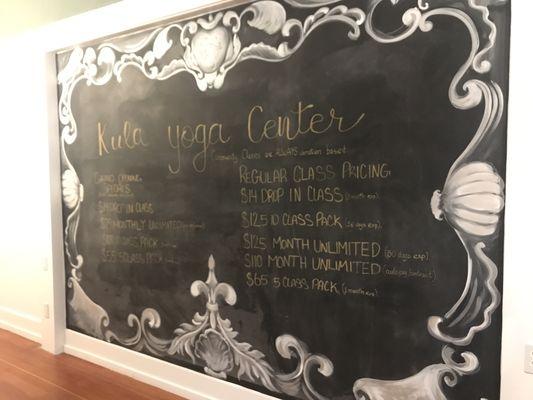 Kula yoga Center
Community Classes are ALWAYS donation based
GRAND OPENING
SPECIALS
DROP IN CLASS
MONTHLY UNLIMITED
CLASS PACK
$55 5 CLASS PACK
REGULAR CLASS PRICING:
$14 DROP IN CLASS
$125 10 CLASS PACK
$125 MONTH UNLIMITED (30 days exp)
$110 MONTH UNLIMITED (autopay contract)
$65 5 CLASS PACK